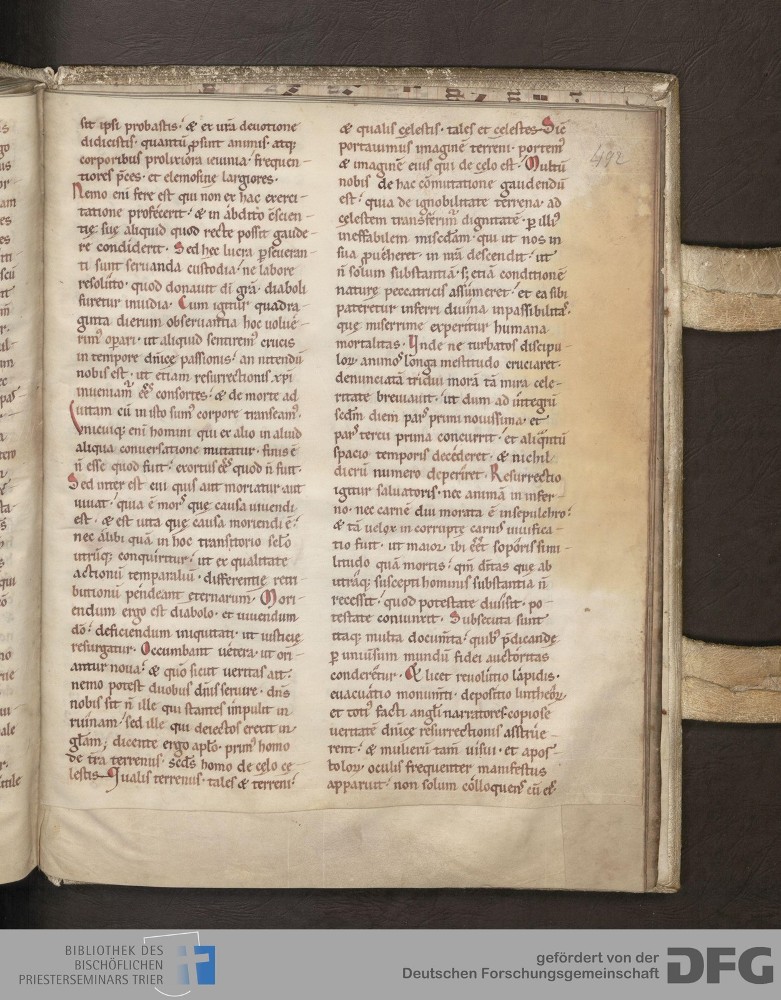 sit ipsi probastis. & ex ur̄a deuotione
didicistis. quantū ꝓsint animis. atq;
corporibus prolixiora ieiunia. frequen-
tiores p̄ces. et elemosinę largiores.
Nemo eni fere est qui non ex hac exerci-
tatione profecerit. & in abdito c̄scien-
tię suę aliquid quod recte possit gaude-
re condiderit. Sed hec lucra p̱seueran-
ti sunt seruanda custodia. ne labore
resolūto. quod donauit dī gr̄a. diaboli
furetur inuidia. Cum igitur quadra-
ginta dierum obseruantia hoc uolue-
rim᷒ op̱ari. ut aliquid sentirem᷒ crucis
in tempore dn̄icę passionis. an nitendū
nobis est. ut etiam resurrectionis xp̄i
inueniam᷒ ee᷒ consortes. & de morte ad
uitam cū in isto sum᷒ corpore transeam᷒.
Unicuiq; eni homini qui ex alio in aliud
aliqua conuersatione mutatur. finis ē
n̄ esse quod fuit. exortus ee᷒ quod n̄ fuit.
Sed inter est cui quis aut moriatur aut
uiuat. quia ē mors quę causa uiuendi
est. & est uita quę causa moriendi ē.
nec alibi quā in hoc transitorio sclo
utrūq; conquiritur. ut ex qualitate
actionū temporaliū. differentię retri
butionū pendeant ęternarum. Mori-
endum ergo est diabolo. et uiuendum
dō. deficiendum iniquitati. ut iusticię
resurgatur. Occumbant uetera. ut ori-
antur noua. & quō sicut ueritas ait.
nemo potest duobus dn̄is seruire. dn̄s
nobis sit n̄ ille qui stantes impulit in
ruinam. sed ille qui deiectos erexit in
gl̄am; dicente ergo apl̄o. prim᷒ homo
de t̄ra terrenus. scd̄s homo de cęlo cę-
lestis. Qualis terrenus. tales & terreni.
& qualis cęlestis. tales et cęlestes. Sic̄
portauimus imaginē terreni. portem᷒
& imaginē eius qui de cęlo est. Multū
nobis de hac cōmutatione gaudendū
est. quia de ignobilitate terrena. ad
cęlestem transferim᷒ dignitatē. p̱ illi᷒
ineffabilem mis̄cdiam. qui ut nos in
sua ꝓueheret. in nr̄a descendit. ut
n̄ solum substantiā. s; etiā conditionē
naturę peccatricis assumeret. et ea sibi
pateretur inferri diuina inpassibilitas.
quę miserrime experitur humana
mortalitas. Unde ne turbatos discipu-
loꝝ animos longa mestitudo cruciaret.
denunciatā tridui morā tā mira cele-
ritate breuiauit. ut dum ad integrū
sedm̄ diem pars primi nouissima. et
pars tercii prima concurrit. et aliq̄ntū
spacio temporis decederet. & nichil
dierū numero deperiret. Resurrectio
igitur saluatoris. nec animā in infer-
no. nec carnē diu morata ē in sepulchro.
& tā uelox incorruptę carnis uiuifica-
tio fuit. ut maior ibi eēt soporis simi-
litudo quā mortis. qm̄ dītas que ab
utraq; suscepti hominis substantia n̄
recessit. quod potestate diuisit. po-
testate coniunxit. Subsecuta sunt
itaq; multa docum̄ta. quib; p̄dicandę
p̱ uniūsum mundū fidei auctoritas
conderetur. & licet reuolutio lapidis.
euacuatio monum̄ti. depositio lintheoꝝ.
et toti᷒ facti angl̄i narratores copiose
ueritatē dn̄icę resurrectionis asstrue-
rent. & mulierū tam̄ uisui. et apos-
toloꝝ. oculis frequenter manifestus
apparuit. non solum colloquens cū eis.
492
BIBLIOTHEK DES
BISCHÖFLICHEN
PRIESTERSEMINARS TRIER
gefördert von der
Deutschen Forschungsgemeinschaft
DFG